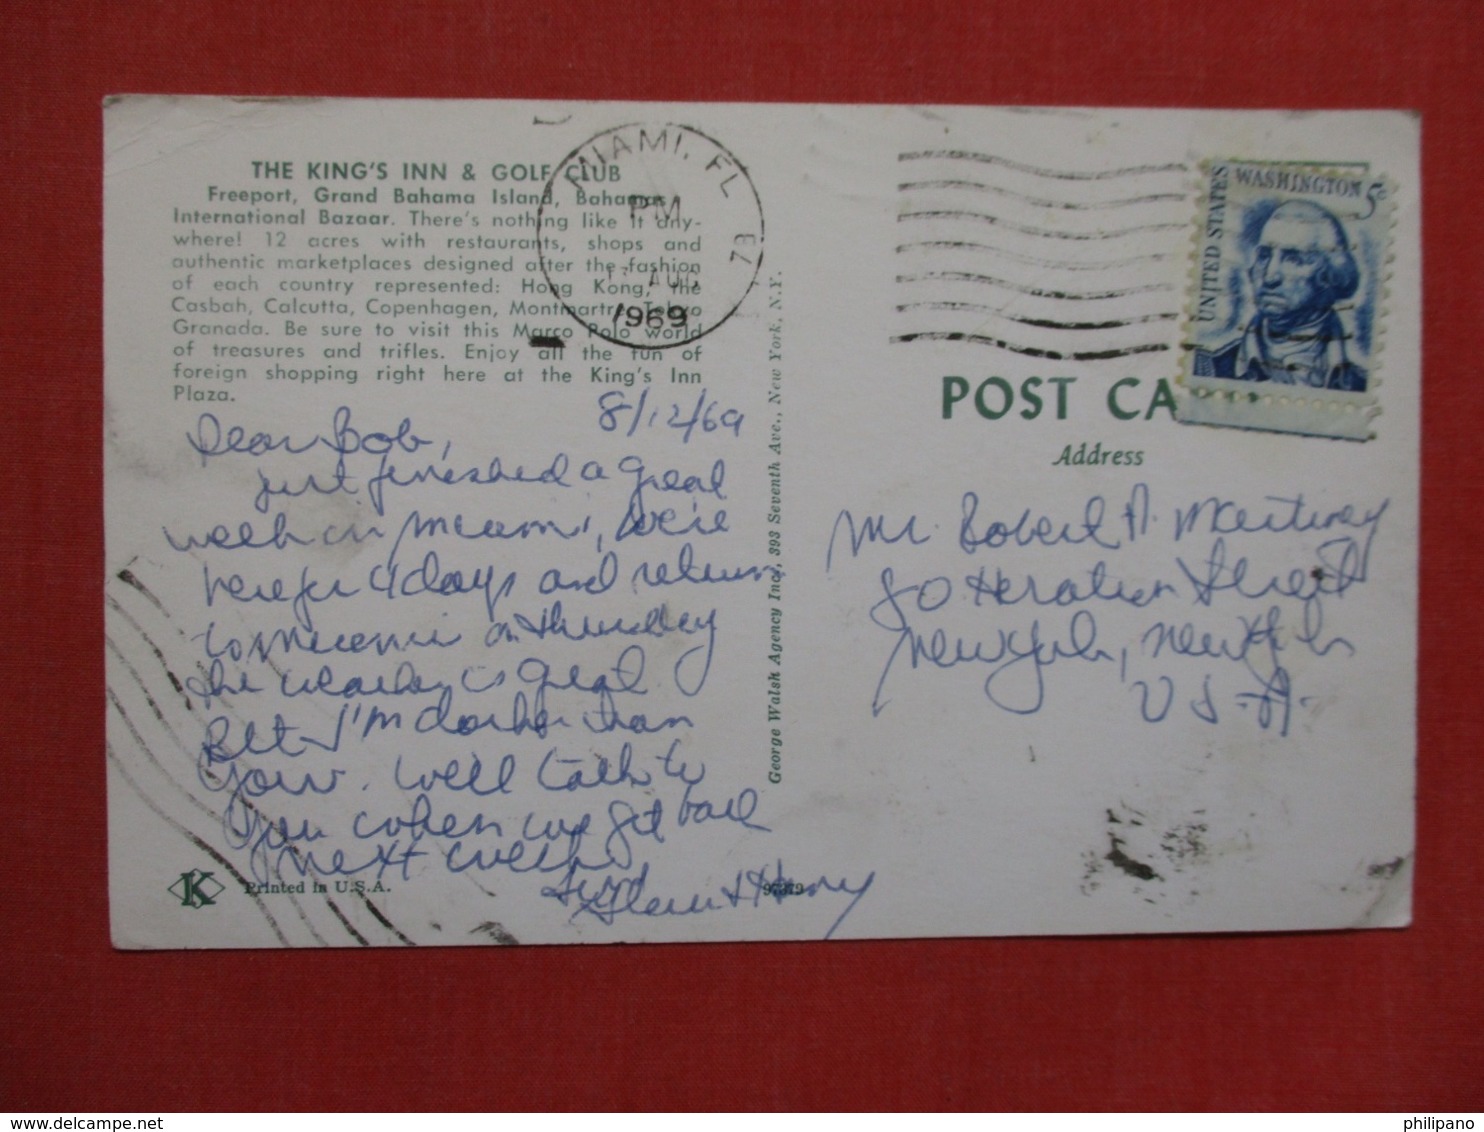 THE KING'S INN & GOLF CLUB
Freeport, Grand Bahama Island, Bahamas
International Bazaar. There's nothing like it any-
where! 12 acres with restaurants, shops and
authentic marketplaces designed after the fashion
of each country represented: Hong Kong, the
Casbah, Calcutta, Copenhagen, Montmartre, Tokyo
Granada. Be sure to visit this Marco Polo world
of treasures and trifles. Enjoy all the fun of
foreign shopping right here at the King's Inn
Plaza.
MIAMI, FL
PM
AUG
1969
8/12/69
Dear Bob,
just finished a great
week in Miami, we're
here for 4 days and return
to Miami on Thursday
the weather is great
Bet I'm darker than
you. We'll talk to
you when we get back
next week.
& Harry
K
Printed in U.S.A.
97379
George Walsh Agency Inc., 393 Seventh Ave., New York, N.Y.
UNITED STATES
WASHINGTON 5c
POST CA
Address
Mr. Robert A.
80 Street
New York, New York
U.S.A.
www.delcampe.net
philipano